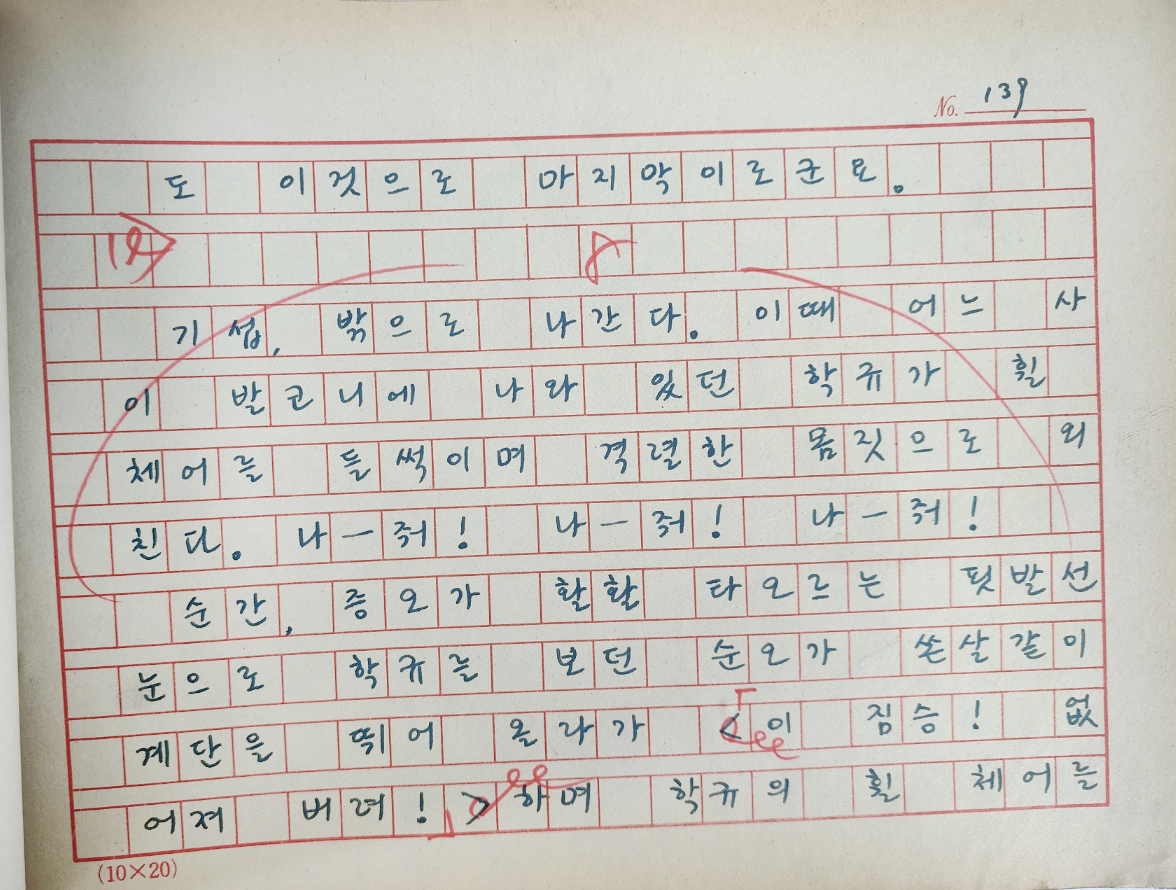 No. 139
도 이것으로 마지막이로군요.
8
기섭, 밖으로 나간다. 이때 어느 사
이 발코니에 나와 있던 학규가 휠
체어를 들썩이며 격렬한 몸짓으로 외
친다. 나—줘! 나—줘! 나—줘!
순간, 증오가 활활 타오르는 핏발선
눈으로 학규를 보던 순오가 쏜살같이
계단을 뛰어 올라가 「이 짐승! 없
어져 버려!」 하며 학규의 휠 체어를
(10×20)